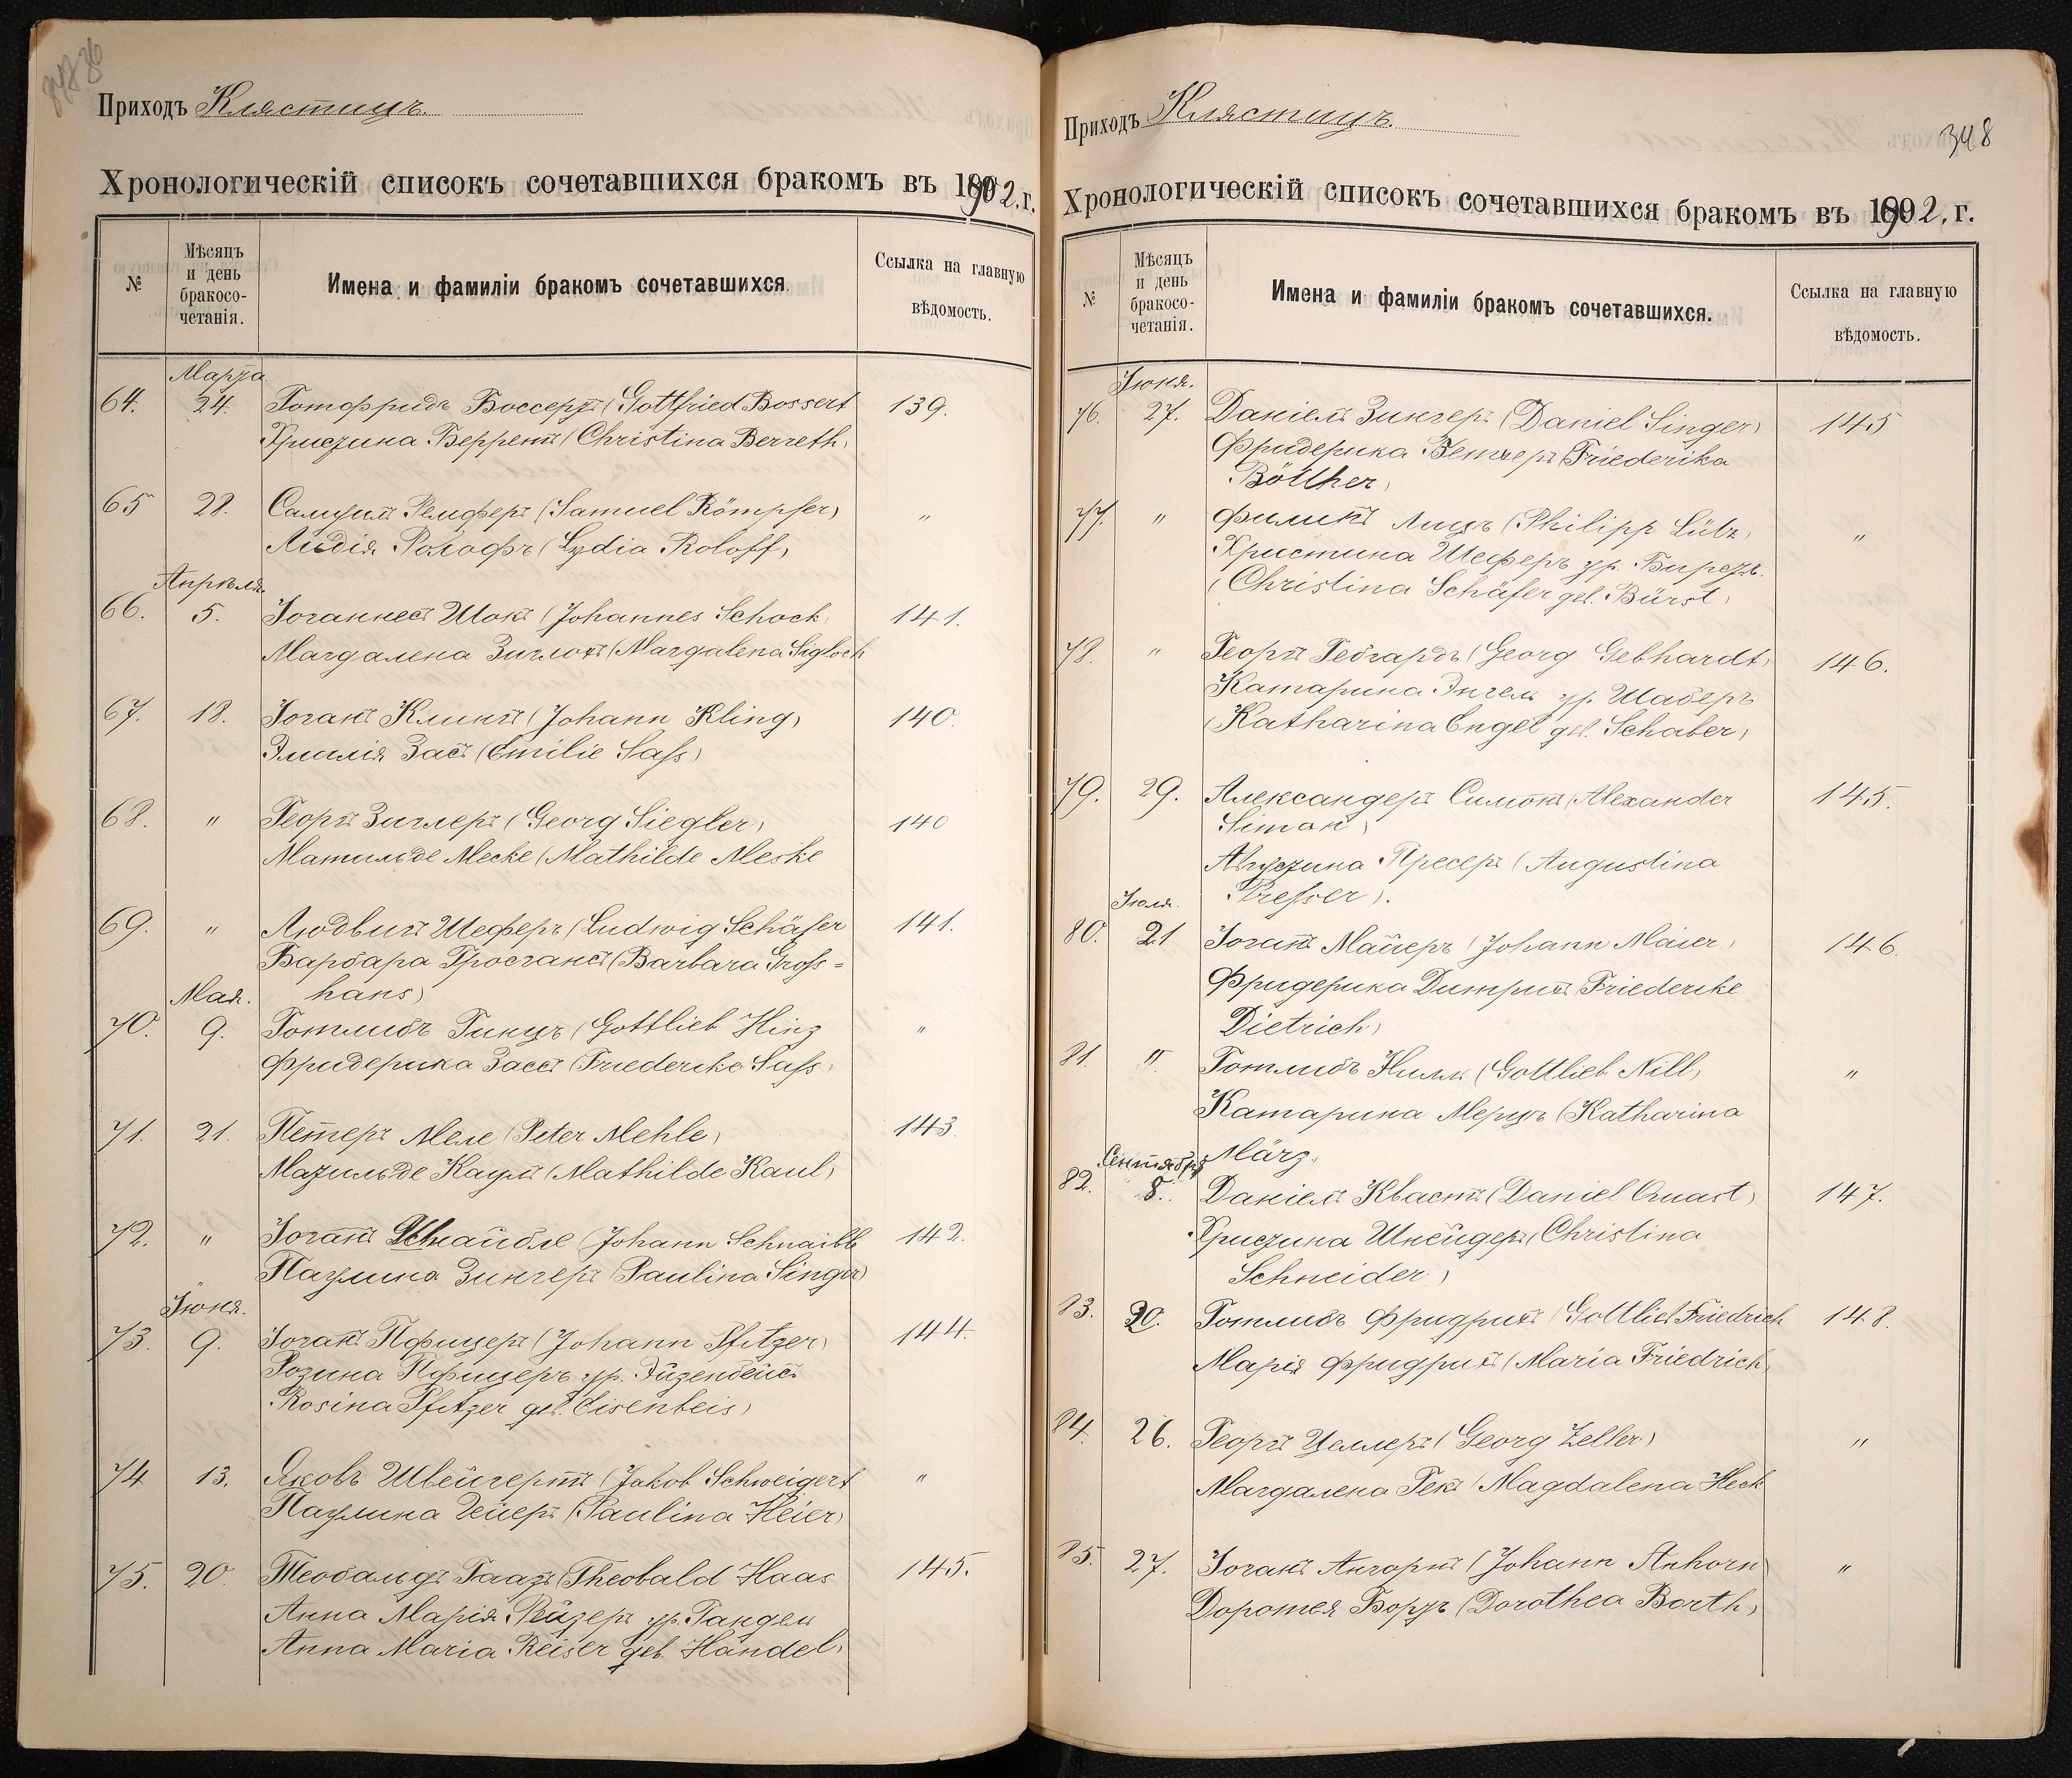 Приходъ Клястицъ.
Хронологическій списокъ сочетавшихся бракомъ въ 1902. г.
№
Мѣсяцъ
и день
бракосо-
четанія.
Имена и фамиліи бракомъ сочетавшихся.
Ссылка на главную
вѣдомость.
Марта.
64. 24. Готфридъ Боссертъ (Gottfried Bossert 139.
Христина Беррет (Christina Berreth)
65 28. Самуил Ремпферъ (Samuel Römpfer) "
Лидія Ролофъ (Lydia Roloff)
Апрѣля.
66. 5. Іоганнес Шокъ (Johannes Schock) 141.
Магдалена Зиглохъ (Margdalena Sigloch
67. 18. Іоганъ Клингъ (Johann Kling) 140.
Эмилія Засъ (Emilie Saß)
68. " Георгъ Зиглеръ (Georg Siegler) 140
Матильде Меске (Mathilde Meske
69. " Людвигъ Шеферъ (Ludwig Schäfer 141.
Барбара Гросгансъ (Barbara Groß=
hans)
Мая.
70. 9. Готлибъ Гинцъ (Gottlieb Hinz "
Фридерика Зассъ (Friederike Saß)
71. 21. Петеръ Меле (Peter Mehle) 143.
Матильде Каулъ (Mathilde Kaul)
72. " Іоганъ Шнайбле (Johann Schnaible 142.
Паулина Зингеръ (Paulina Singer)
Іюня.
73. 9. Іоганъ Пфицеръ (Johann Pfitzer) 144.
Розина Пфицеръ ур. Эйзенбейсъ
Rosina Pfitzer geb. Eisenbeis)
74 13. Яковъ Швейгертъ (Jakob Schweigert "
Паулина Гейеръ (Paulina Heier)
75. 20. Теобальдъ Гаазъ (Theobald Haas 145.
Анна Марія Рейзеръ ур. Гандель
Anna Maria Reiser geb. Händel)
Приходъ Клястицъ.
348
Хронологическій списокъ сочетавшихся бракомъ въ 1902. г.
№
Мѣсяцъ
и день
бракосо-
четанія.
Имена и фамиліи бракомъ сочетавшихся.
Ссылка на главную
вѣдомость.
Іюня.
76. 27. Даніелъ Зингеръ (Daniel Singer) 145
Фридерика Бетхеръ (Friederika
Bötther)
77. " Филипъ Лицъ (Philipp Lütz) "
Христина Шеферъ ур. Бирстъ.
(Christina Schäfer geb. Bürst)
78. " Георгъ Гебгардъ (Georg Gebhardt) 146.
Катарина Энгель ур. Шаберъ
(Katharina Engel geb. Schaber)
79. 29. Александеръ Симонъ (Alexander 145.
Simon)
Августина Пресеръ (Augustina
Presser).
Іюля.
80. 21 Іоганъ Майеръ (Johann Maier) 146.
Фридерика Дитрихъ (Friederike
Dietrich)
81. " Готлибъ Нилль (Gottlieb Nill) "
Катарина Мерцъ (Katharina
März)
Сентября
82. 8. Даніелъ Квастъ (Daniel Quast) 147.
Христина Шнейдеръ (Christina
Schneider)
83. 20. Готлибъ Фридрихъ (Gottlieb Friedrich 148.
Марія Фридрихъ (Maria Friedrich)
84. 26. Георгъ Целлеръ (Georg Zeller) "
Магдалена Гекъ (Magdalena Heck
85. 27. Іоганъ Ангорнъ (Johann Anhorn) "
Доротея Бортъ (Dorothea Borth)